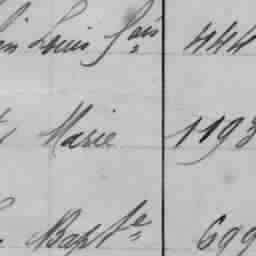 Louis Fçois 444
Marie 1193
Bapte 699